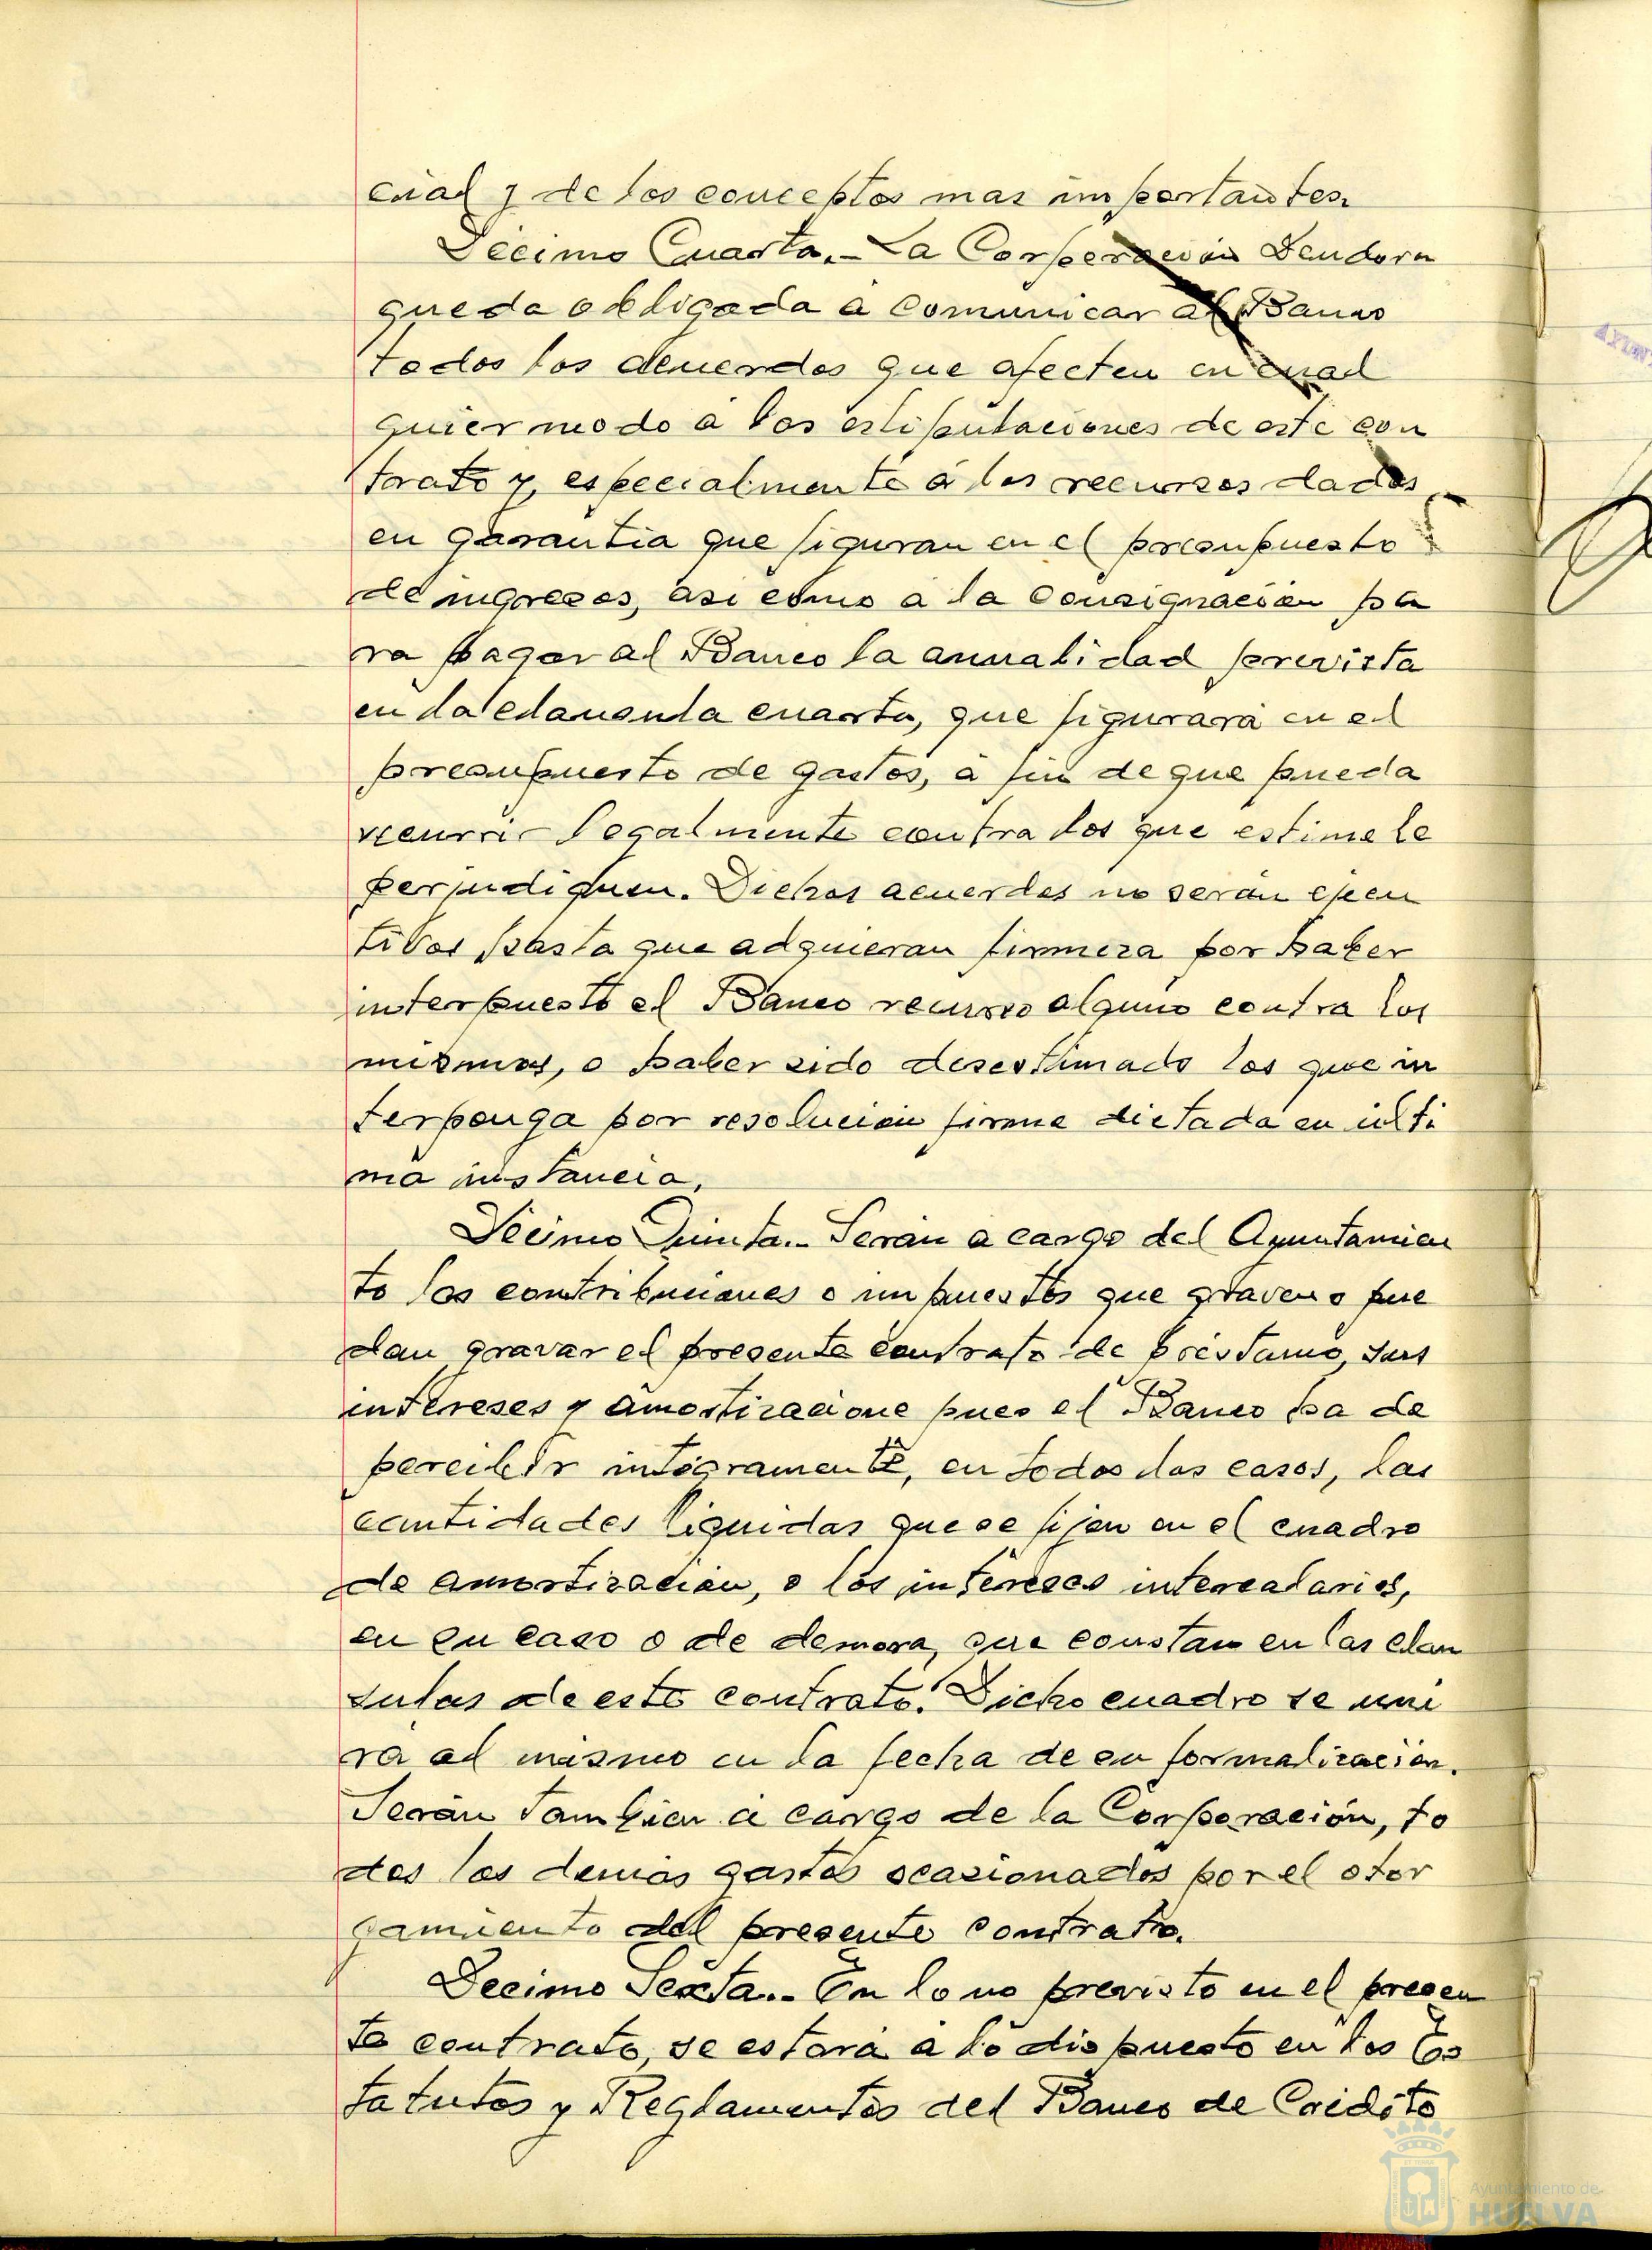 cial y de los conceptos mas importantes.
Décimo Cuarta.- La Corporación Deudora
queda obligada a comunicar al Banco
todos los acuerdos que afecten en cual
quier modo a las estipulaciones de este con
trato y, especialmente á los recursos dados
en garantia que figuran en el presupuesto
de ingresos, asi como a la Consignación pa
ra pagar al Banco la anualidad prevista
en la clausula cuarta, que figurará en el
presupuesto de gastos, a fin de que pueda
recurrir legalmente contra los que estime le
perjudiquen. Dichos acuerdos no serán ejecu
tivos hasta que adquieran firmeza por haber
interpuesto el Banco recurso alguno contra los
mismos, o haber sido desestimado los que in
terponga por resolución firme dictada en ulti
ma instancia.
Décimo Quinta.- Serán a cargo del Ayuntamien
to las contribuciones o impuestos que graven o pue
dan gravar el presente contrato de préstamo, sus
intereses y amortizacione pues el Banco ha de
percibir integramente, en todos los casos, las
cantidades liquidas que se fijen en el cuadro
de amortización, o los intereses intercalarios,
en su caso o de demora, que constan en las clau
sulas de este contrato. Dicho cuadro se uni
rá al mismo en la fecha de su formalización.
Serán tambien a cargo de la Corporación, to
dos los demás gastos ocasionados por el otor
gamiento del presente contrato.
Decimo Sexta.- En lo no previsto en el presen
te contrato, se estará a lo dispuesto en los Es
tatutos y Reglamentos del Banco de Crédito
Ayuntamiento de
HUELVA